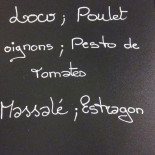 Loco ; Poulet
oignons ; Pesto de
Tomates
Massalé ; Estragon